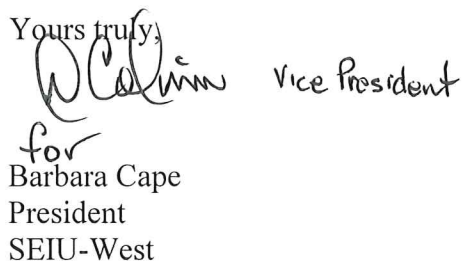 Yours truly,
D Colvin Vice President
for
Barbara Cape
President
SEIU-West